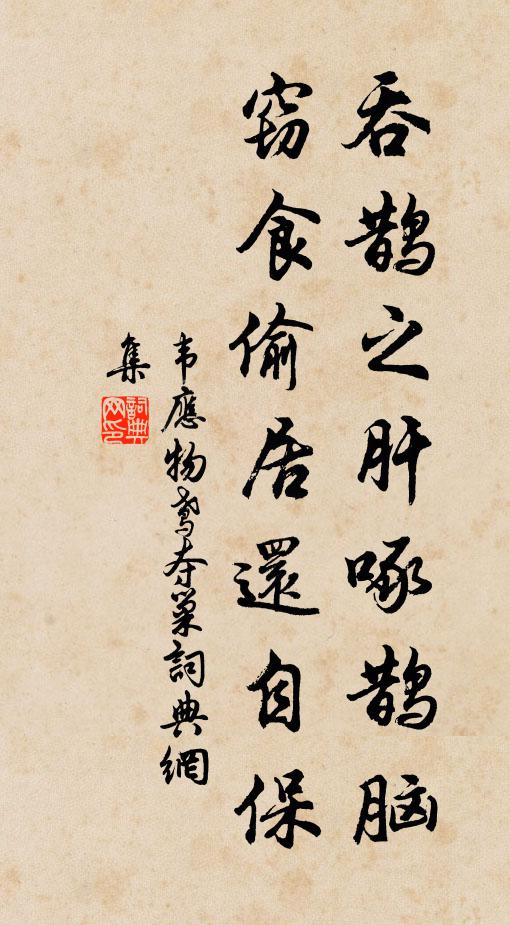 吞鹊之肝啄鹊脑
窃食偷居還自保
韦應物鸢夺巢詞典網
集
詞典網印